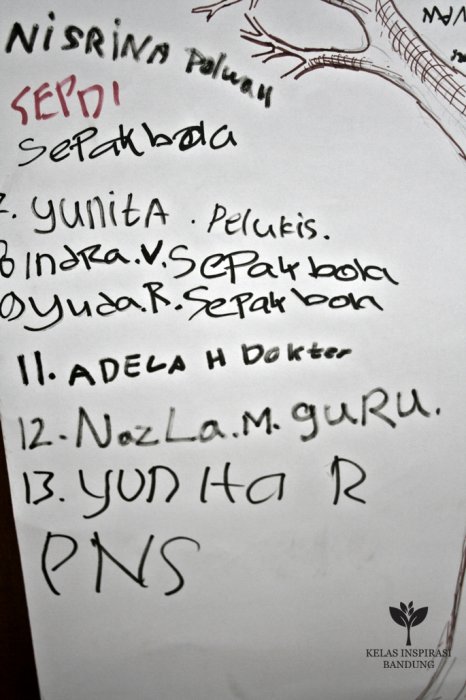 NISRINA Polwan
SEPDI
Sepakbola
7. YUNITA . Pelukis.
INDRA.V. SEPAK bola
Yuda.R. SEPAK bola
11. ADELA H Dokter
12. NazLa.M. GURU.
13. YUNITA R
PNS
KELAS INSPIRASI
BANDUNG